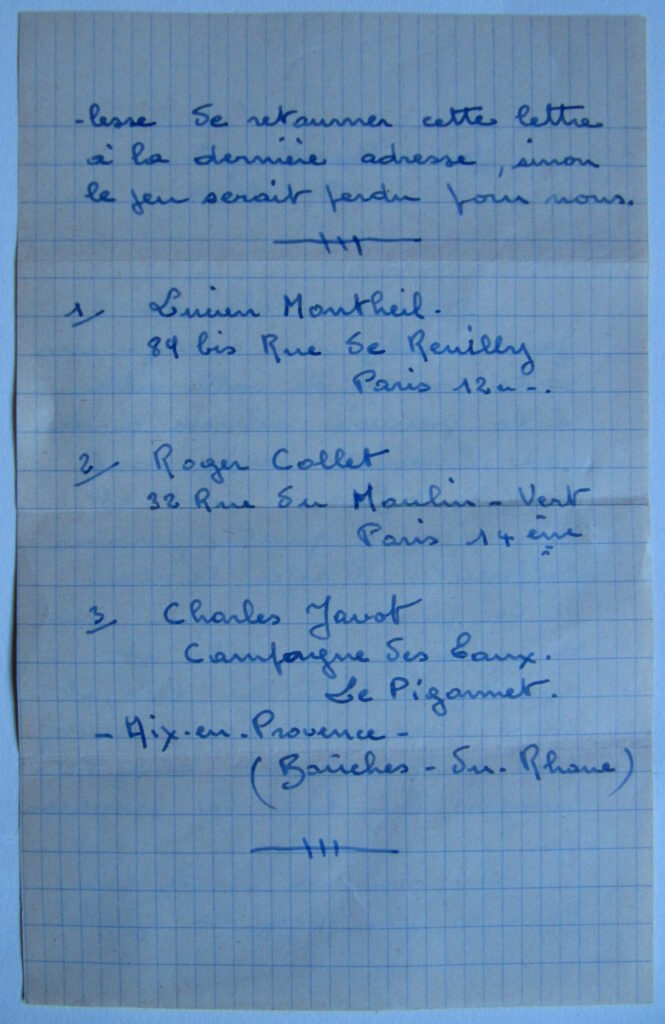 -lesse de retourner cette lettre
à la dernière adresse, sinon
le jeu serait perdu pour nous.
1/ Lucien Montheil.
89 bis Rue de Reuilly
Paris 12e -.
2/ Roger Collet
32 Rue du Moulin-Vert
Paris 14 ème
3/ Charles Javot
Campagne des Eaux.
Le Pigonnet.
- Aix-en-Provence -
(Bouches-du-Rhone)